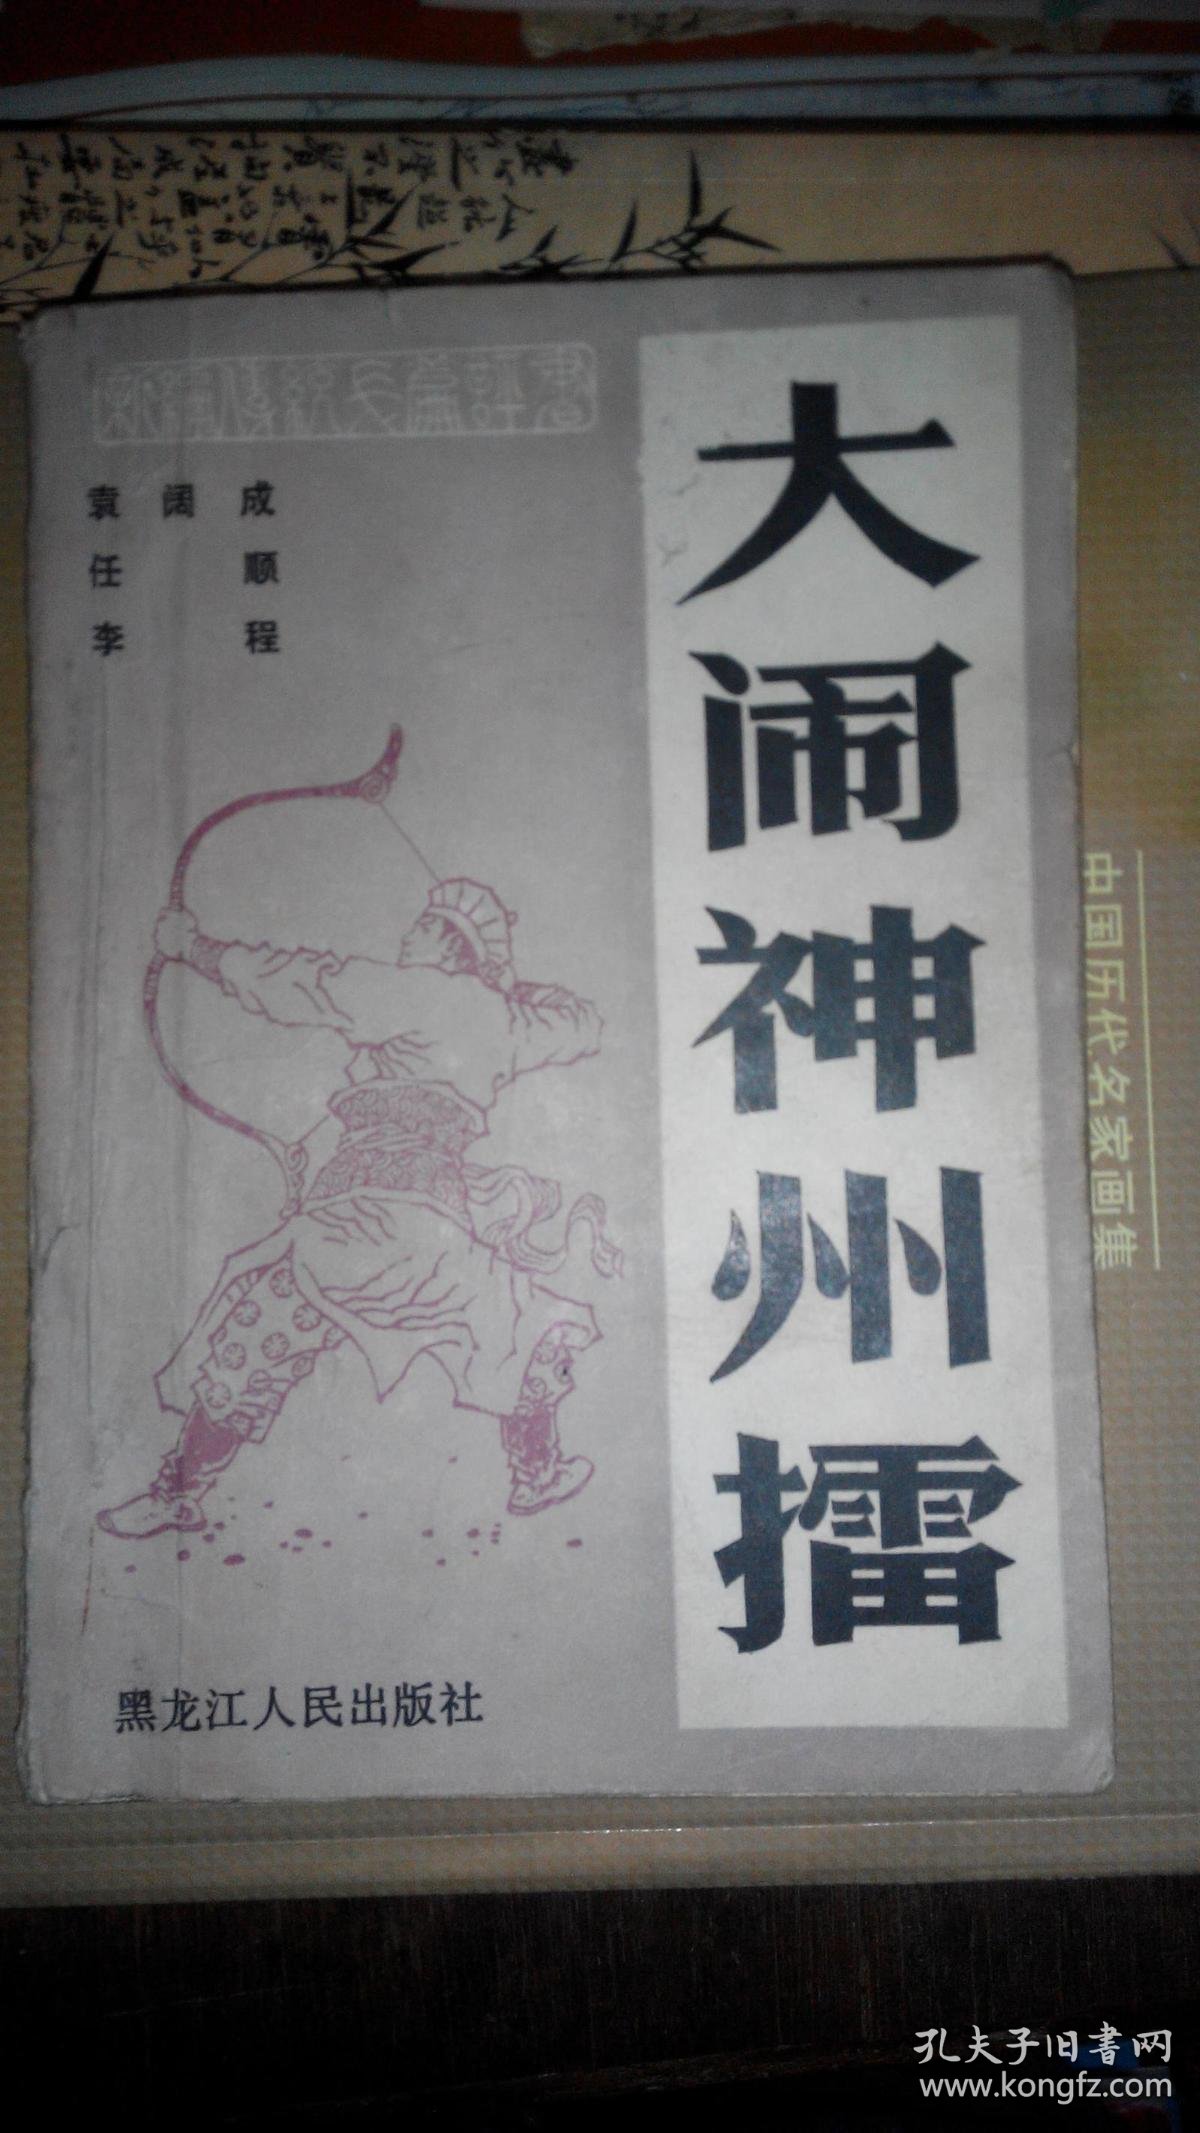 新编传统长篇评书
袁阔成
任顺
李程
大闹神州擂
黑龙江人民出版社
中国历代名家画集
孔夫子旧书网
www.kongfz.com